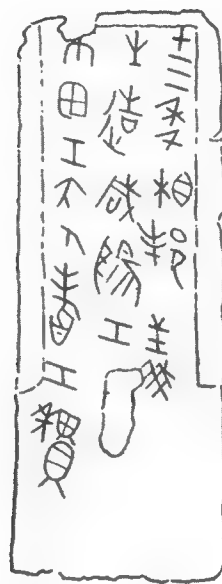 十三年相邦義
之造咸陽工
帀田工大人耆工積